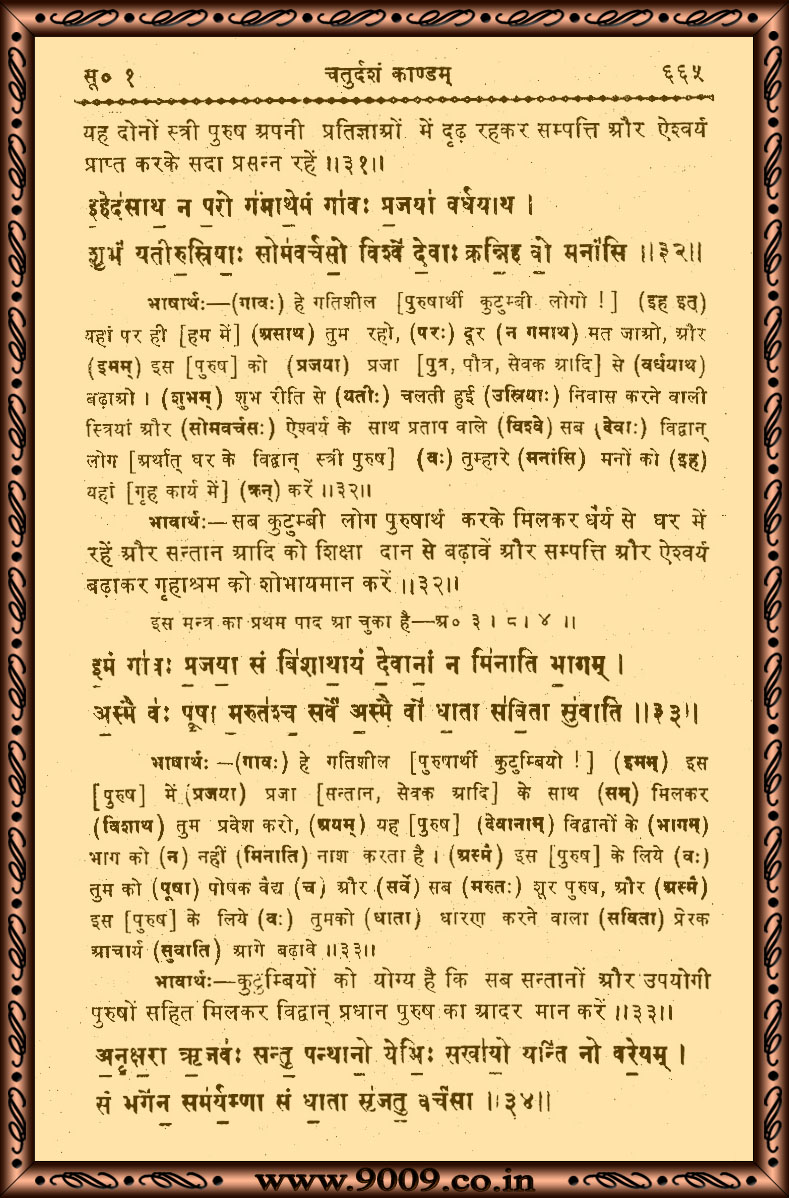 सू० १ चतुर्दशं काण्डम् ६६५
यह दोनों स्त्री पुरुष अपनी प्रतिज्ञाओं में दृढ़ रहकर सम्पत्ति और ऐश्वर्य
प्राप्त करके सदा प्रसन्न रहें ॥३१॥
इ॒हेद॑साथ॒ न प॒रो ग॑मा॒थेमं गा॑वः प्र॒जया॑ वर्धयाथ ।
शुभं॑ यतीरु॒स्रियाः॒ सोम॑वर्चसो॒ विश्वे॑ दे॒वाः क्रन्नि॒ह वो॒ मनां॑सि ॥३२॥
भाषार्थः—(गावः) हे गतिशील [पुरुषार्थी कुटुम्बी लोगो !] (इह इत्)
यहां पर ही [हम में] (असाथ) तुम रहो, (परः) दूर (न गमाथ) मत जाओ, और
(इमम्) इस [पुरुष] को (प्रजया) प्रजा [पुत्र, पौत्र, सेवक आदि] से (वर्धयाथ)
बढ़ाओ । (शुभम्) शुभ रीति से (यतीः) चलती हुई (उस्रियाः) निवास करने वाली
स्त्रियां और (सोमवर्चसः) ऐश्वर्य के साथ प्रताप वाले (विश्वे) सब (देवाः) विद्वान्
लोग [अर्थात् घर के विद्वान् स्त्री पुरुष] (वः) तुम्हारे (मनांसि) मनों को (इह)
यहां [गृह कार्य में] (क्रन्) करें ॥३२॥
भावार्थः—सब कुटुम्बी लोग पुरुषार्थ करके मिलकर धैर्य से घर में
रहें और सन्तान आदि को शिक्षा दान से बढ़ावें और सम्पत्ति और ऐश्वर्य
बढ़ाकर गृहाश्रम को शोभायमान करें ॥३२॥
इस मन्त्र का प्रथम पाद आ चुका है—अ० ३ । ८ । ४ ॥
इ॒मं गा॑वः प्र॒जया॒ सं वि॑शाथा॒यं दे॒वानां॒ न मि॑नाति भा॒गम् ।
अ॒स्मै वः॑ पू॒षा म॒रुत॑श्च॒ सर्वे॑ अ॒स्मै वो॑ धा॒ता स॑वि॒ता सु॑वाति ॥३३॥
भाषार्थः—(गावः) हे गतिशील [पुरुषार्थी कुटुम्बियो !] (इमम्) इस
[पुरुष] में (प्रजया) प्रजा [सन्तान, सेवक आदि] के साथ (सम्) मिलकर
(विशाथ) तुम प्रवेश करो, (अयम्) यह [पुरुष] (देवानाम्) विद्वानों के (भागम्)
भाग को (न) नहीं (मिनाति) नाश करता है । (अस्मै) इस [पुरुष] के लिये (वः)
तुम को (पूषा) पोषक वैद्य (च) और (सर्वे) सब (मरुतः) शूर पुरुष, और (अस्मै)
इस [पुरुष] के लिये (वः) तुमको (धाता) धारण करने वाला (सविता) प्रेरक
आचार्य (सुवाति) आगे बढ़ावे ॥३३॥
भावार्थः—कुटुम्बियों को योग्य है कि सब सन्तानों और उपयोगी
पुरुषों सहित मिलकर विद्वान् प्रधान पुरुष का आदर मान करें ॥३३॥
अ॒नृ॒क्ष॒रा ऋ॒जवः॑ सन्तु॒ पन्था॑नो॒ येभिः॒ सखा॑यो॒ यन्ति॑ नो वरे॒यम् ।
सं भगे॑न॒ सम॑र्य॒म्णा सं धा॒ता सृ॑जतु॒ वर्च॑सा ॥३४॥
www.9009.co.in